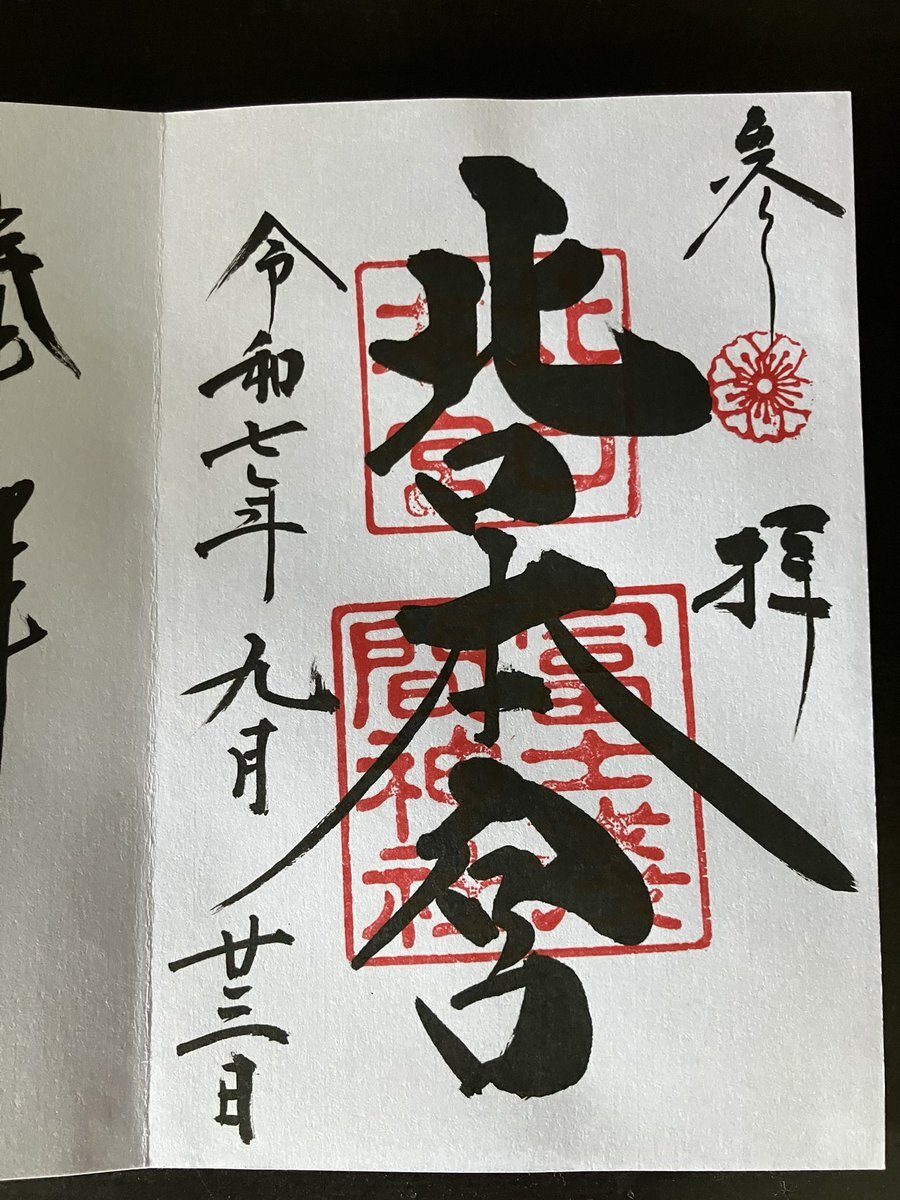 参拝
北口本宮
北口
本宮
冨士淺
間神社
令和七年九月廿三日